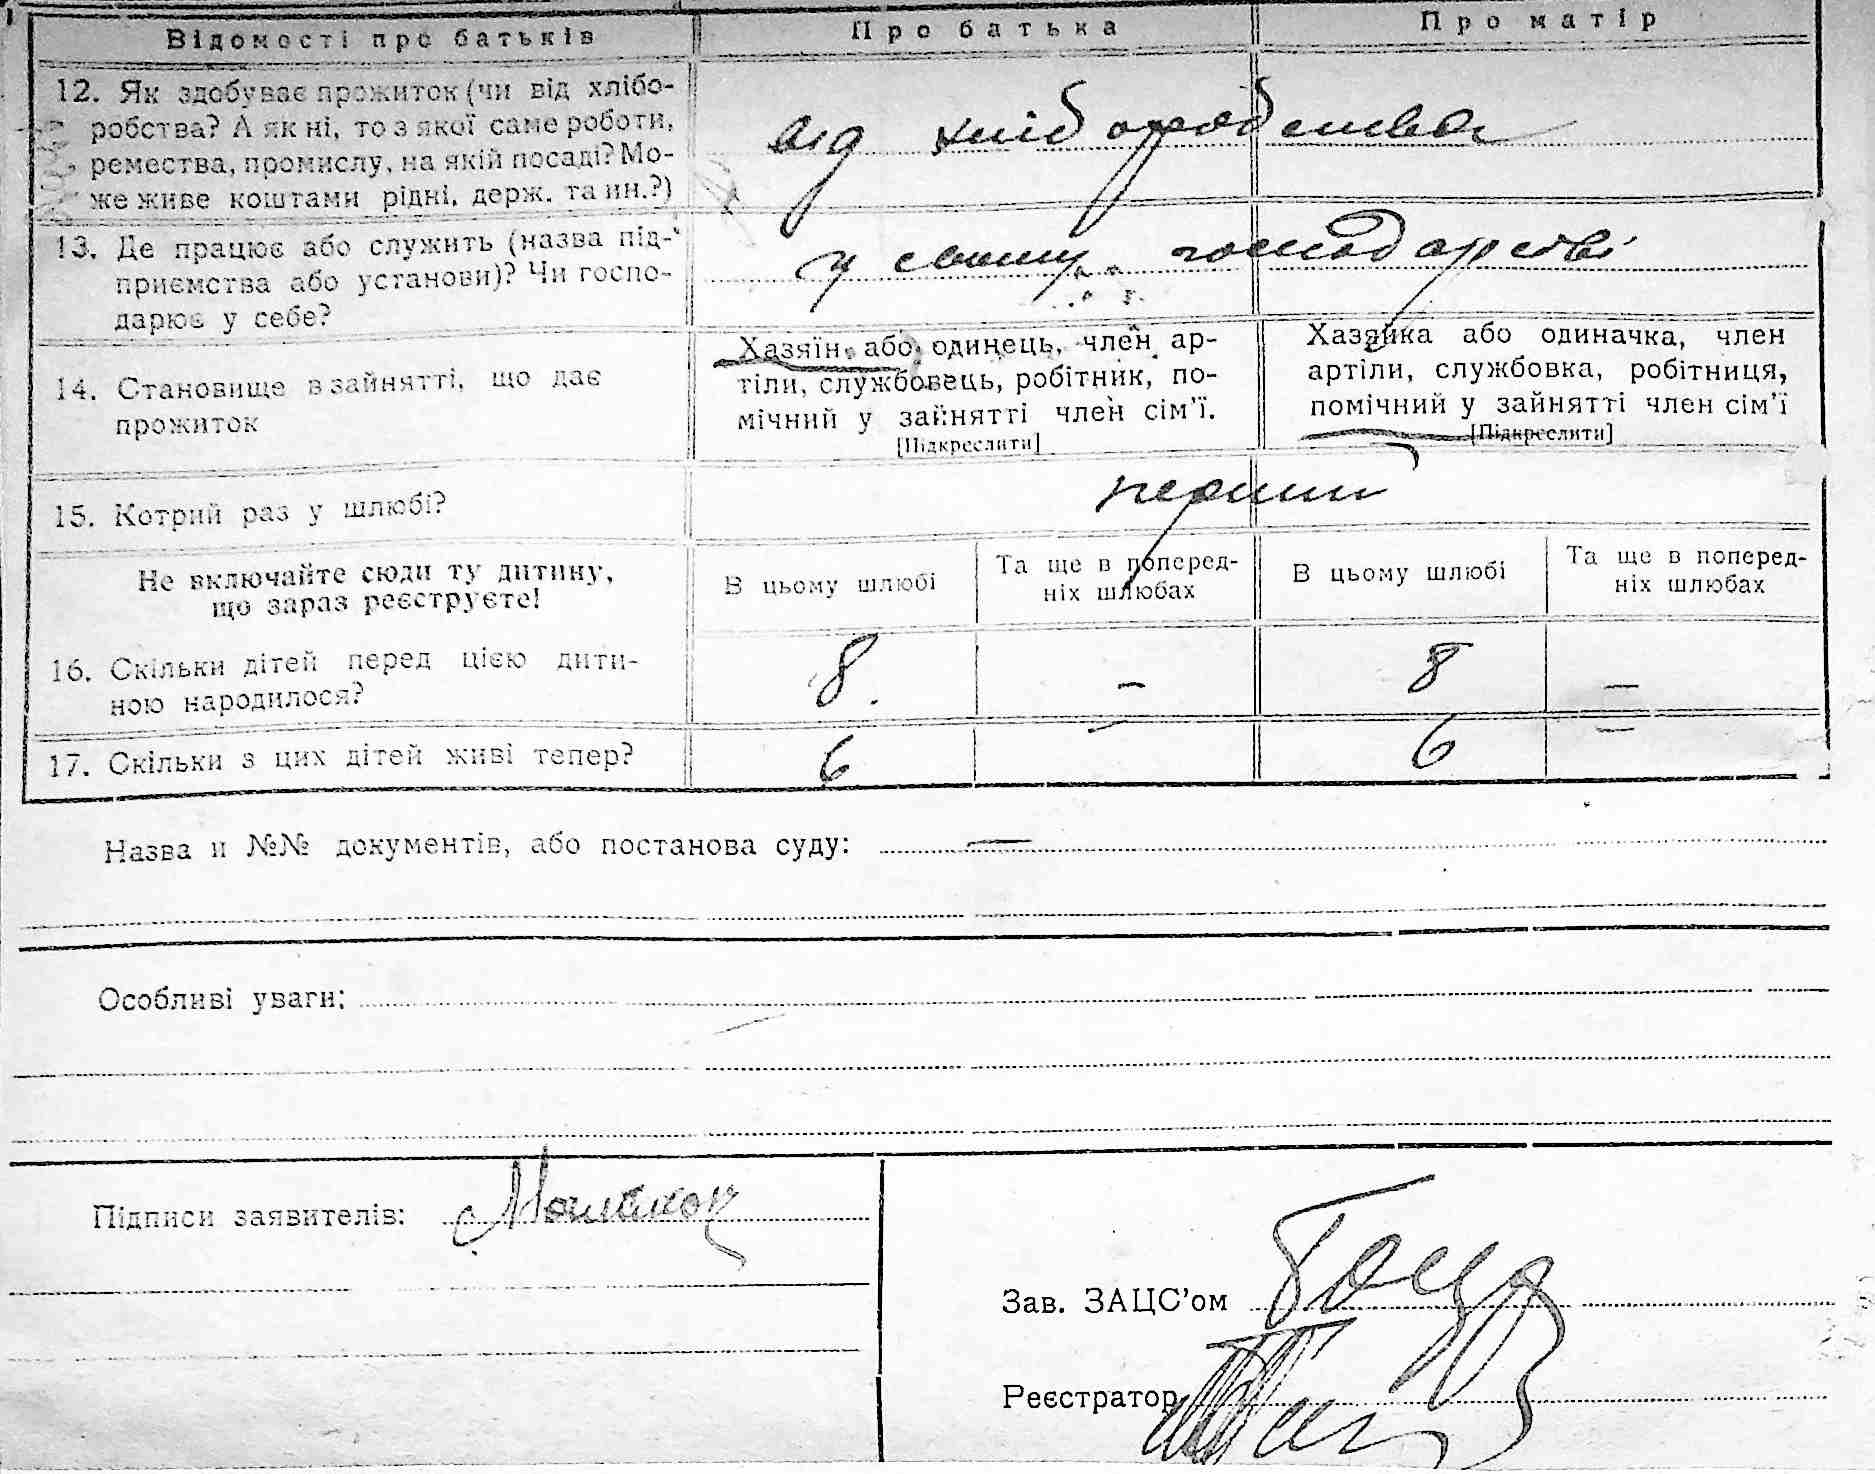 Відомості про батьків
Про батька
Про матір
12. Як здобуває прожиток (чи від хлібо-
робства? А як ні, то з якої саме роботи,
ремества, промислу, на якій посаді? Мо-
же живе коштами рідні, держ. та ин.?)
від хліборобства
13. Де працює або служить (назва під-
приємства або установи)? Чи госпо-
дарює у себе?
у свому господарстві
14. Становище в зайнятті, що дає
прожиток
Хазяїн або одинець, член ар-
тіли, службовець, робітник, по-
мічний у зайнятті член сім’ї.
[Підкреслити]
Хазяйка або одиначка, член
артіли, службовка, робітниця,
помічний у зайнятті член сім’ї
[Підкреслити]
15. Котрий раз у шлюбі?
перший
Не включайте сюди ту дитину,
що зараз реєструєте!
В цьому шлюбі
Та ще в поперед-
ніх шлюбах
В цьому шлюбі
Та ще в поперед-
ніх шлюбах
16. Скільки дітей перед цією дити-
ною народилося?
8. – 8 –
17. Скільки з цих дітей живі тепер?
6 – 6 –
Назва и №№ документів, або постанова суду: —
Особливі уваги:
Підписи заявителів:
Зав. ЗАЦС’ом
Реєстратор